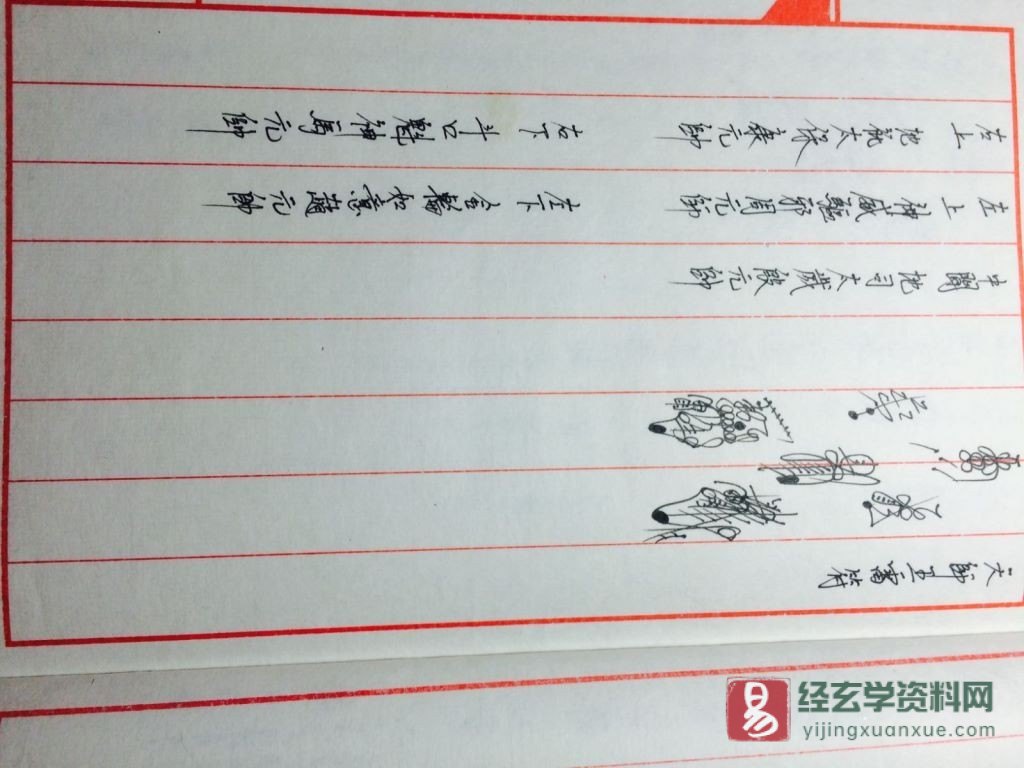 天師五雷符
中間地司太歲殷元帥
左上 神威驅邪周元帥 左下 金輪如意趙元帥
右上 地祇太保康元帥 右下 斗口魁神馬元帥
易
经玄学资料网
yijingxuanxue.com